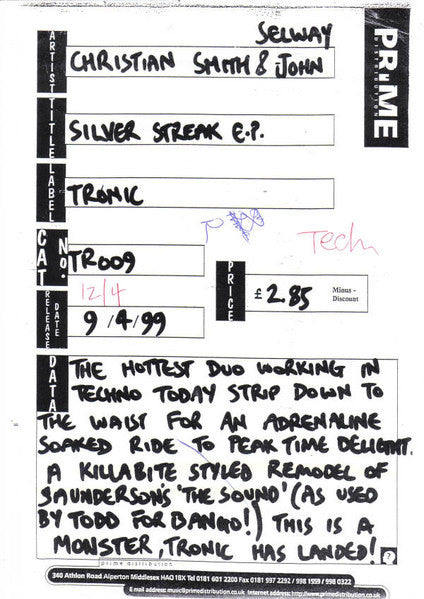 SELWAY
PRIME
DISTRIBUTION
ARTIST
CHRISTIAN SMITH & JOHN
TITLE
SILVER STREAK E.P.
LABEL
TRONIC
Tech
CAT No.
TR009
PRICE
£ 2.85
Minus - Discount
12/4
RELEASE DATE
9/4/99
DATA
THE HOTTEST DUO WORKING IN
TECHNO TODAY STRIP DOWN TO
THE WAIST FOR AN ADRENALINE
SOAKED RIDE TO PEAK TIME DELIGHT.
A KILLABITE STYLED REMODEL OF
SAUNDERSON'S 'THE SOUND' (AS USED
BY TODD FOR BANGO!) THIS IS A
MONSTER, TRONIC HAS LANDED!
?
prime distribution
340 Athlon Road Alperton Middlesex HAO 1BX Tel 0181 601 2200 Fax 0181 997 2292 / 998 1559 / 998 0322
E mail address: music@primedistribution.co.uk Internet address: http://www.primedistribution.co.uk